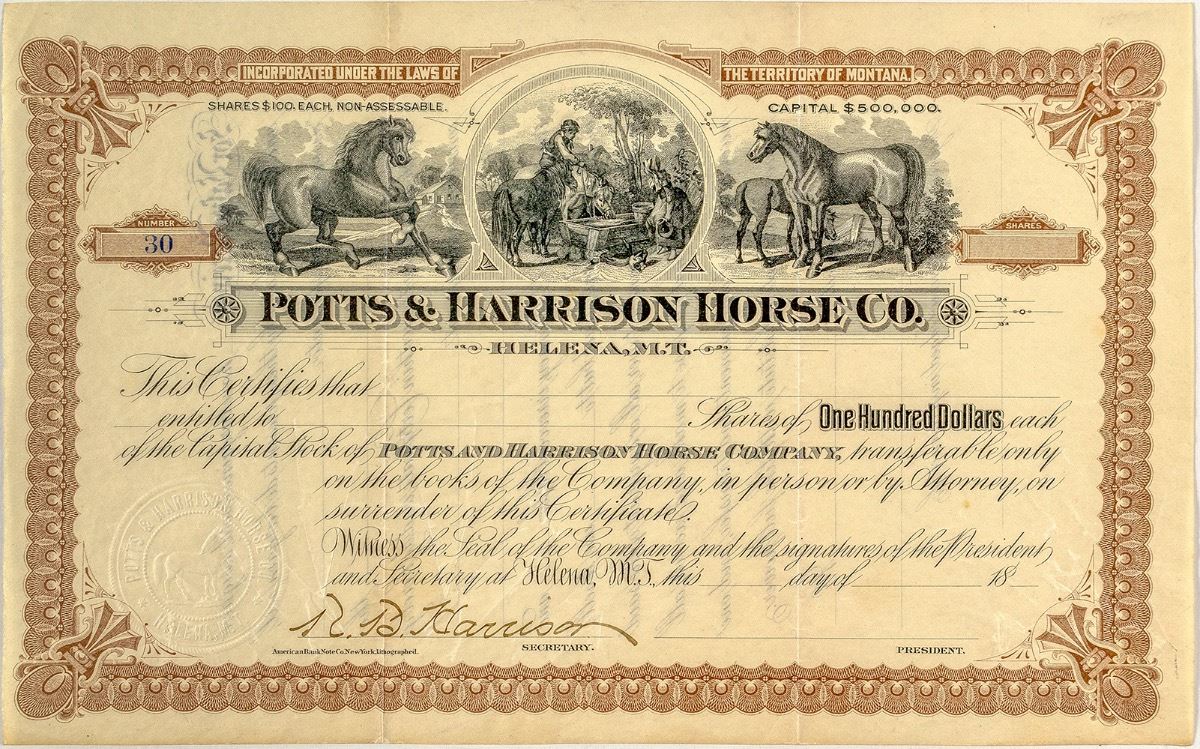 INCORPORATED UNDER THE LAWS OF THE TERRITORY OF MONTANA.
SHARES $100. EACH, NON-ASSESSABLE.
CAPITAL $500,000.
NUMBER
30
SHARES
POTTS & HARRISON HORSE CO.
HELENA, M.T.
This Certifies that
entitled to Shares of One Hundred Dollars each
of the Capital Stock of POTTS AND HARRISON HORSE COMPANY, transferable only
on the books of the Company, in person or by Attorney, on
surrender of this Certificate.
Witness the Seal of the Company and the signatures of the President
and Secretary at Helena, M.T., this day of 18
POTTS & HARRISON HORSE CO.
HELENA,
R. B. Harrison
American Bank Note Co. New York, Lithographed.
SECRETARY.
PRESIDENT.